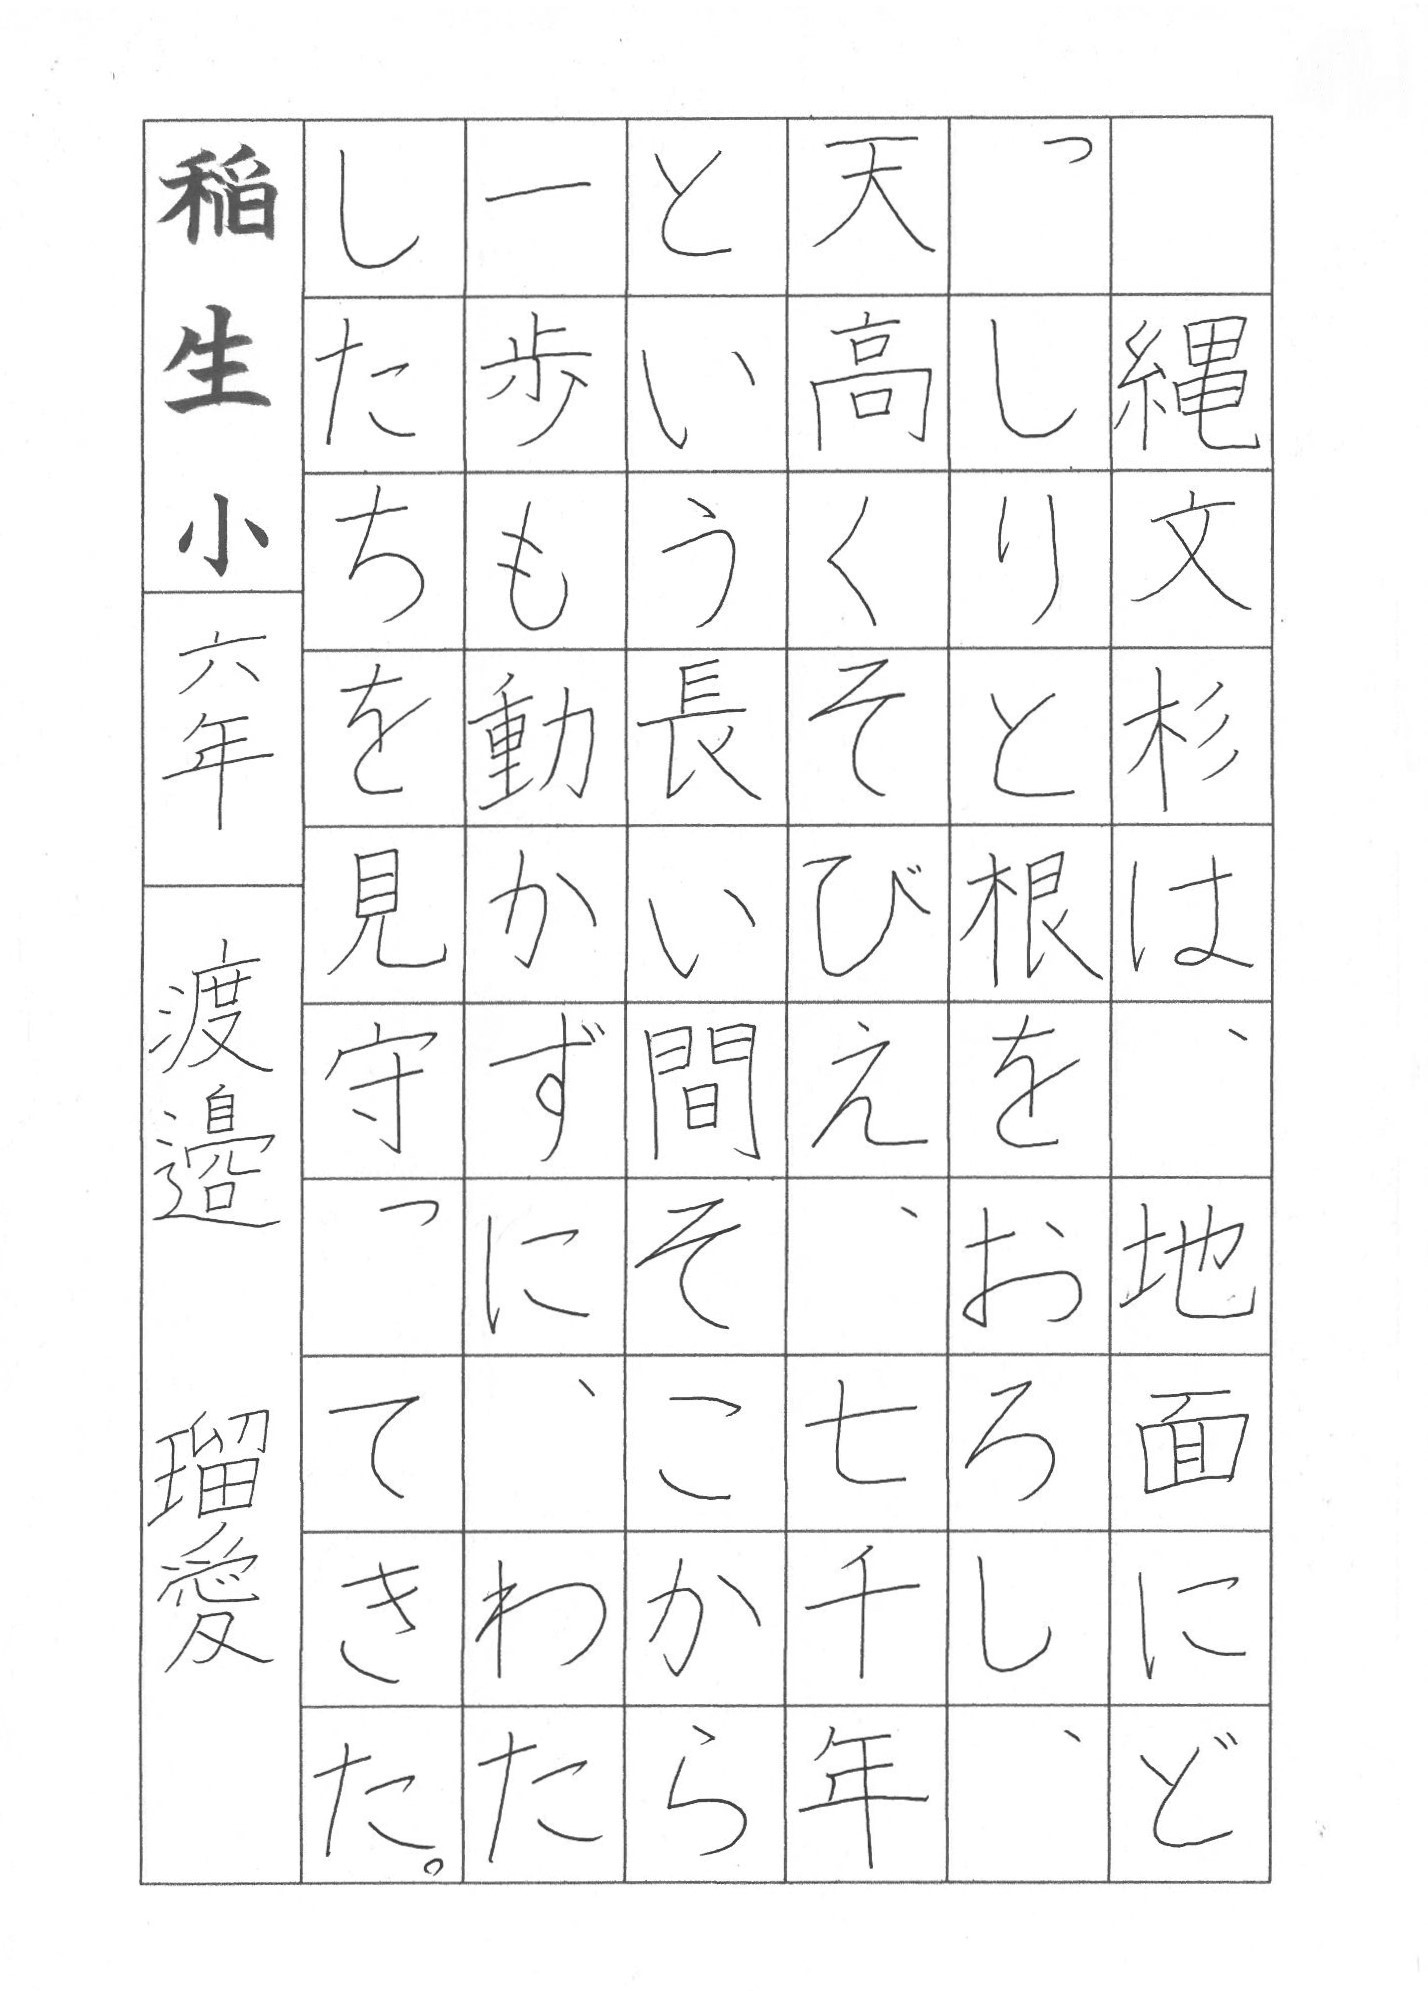 縄文杉は、地面にど
っしりと根をおろし、
天高くそびえ、七千年
という長い間そこから
一歩も動かずに、わた
したちを見守ってきた。
稲生小 六年 渡邉 瑠愛